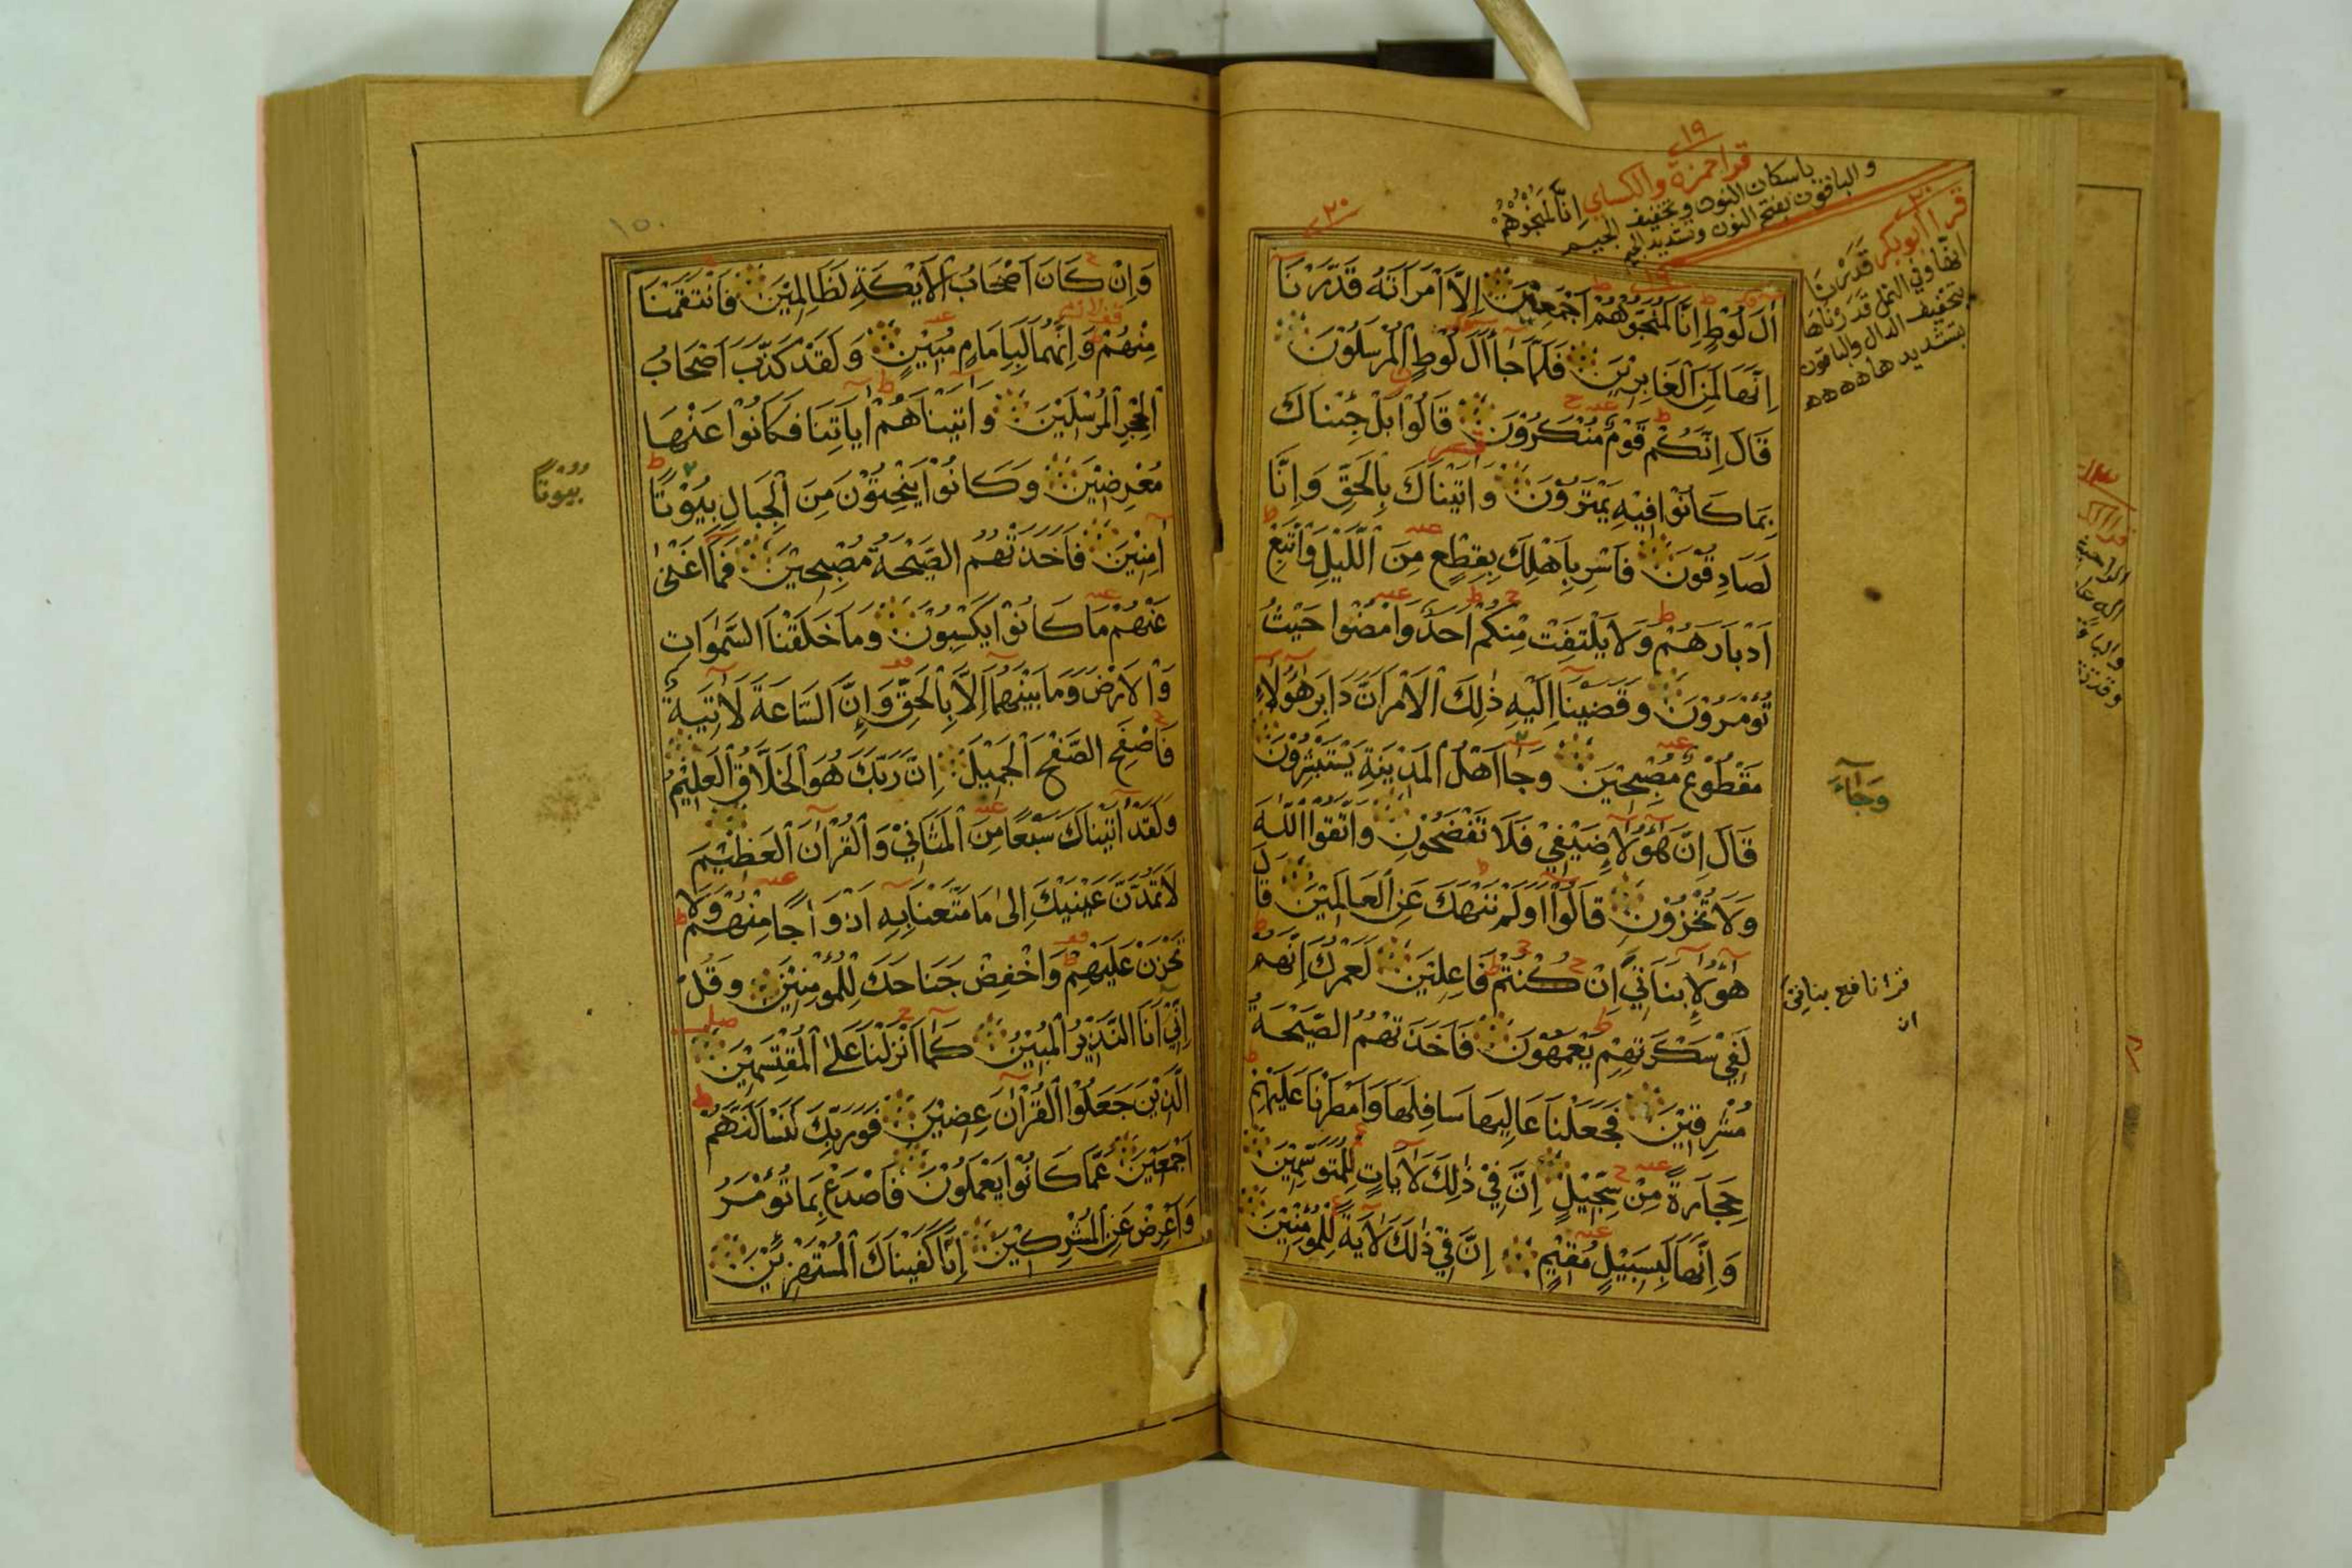 ١٩
قرا حمزة والكساي إنا لمنجوهم
باسكان النون وتخفيف الجيم
والباقون بفتح النون وتشديد الجيم
٢٠
قرا ابو بكر قدرنا
انها وفي النمل قدرناها
بتخفيف الدال والباقون
بتشديدها ههه
٢٠
اٰلَ لُوْطٍ اِنَّا لَمُنَجُّوْهُمْ اَجْمَعِيْنَ اِلَّا امْرَاَتَهُ قَدَّرْنَا
اِنَّهَا لَمِنَ الْغَابِرِيْنَ فَلَمَّا جَاۤ اٰلَ لُوْطِ الْمُرْسَلُوْنَ
قَالَ اِنَّكُمْ قَوْمٌ مُنْكَرُوْنَ قَالُوْا بَلْ جِئْنَاكَ
بِمَا كَانُوْا فِيْهِ يَمْتَرُوْنَ وَاَتَيْنَاكَ بِالْحَقِّ وَاِنَّا
لَصَادِقُوْنَ فَاَسْرِ بِاَهْلِكَ بِقِطْعٍ مِنَ الَّيْلِ وَاتَّبِعْ
اَدْبَارَهُمْ وَلَا يَلْتَفِتْ مِنْكُمْ اَحَدٌ وَامْضُوْا حَيْثُ
تُؤْمَرُوْنَ وَقَضَيْنَا اِلَيْهِ ذٰلِكَ الْاَمْرَ اَنَّ دَابِرَ هٰؤُلَاۤءِ
مَقْطُوْعٌ مُصْبِحِيْنَ وَجَاۤ اَهْلُ الْمَدِيْنَةِ يَسْتَبْشِرُوْنَ
قَالَ اِنَّ هٰؤُلَاۤءِ ضَيْفِيْ فَلَا تَفْضَحُوْنِ وَاتَّقُوا اللّٰهَ
وَلَا تُخْزُوْنِ قَالُوْا اَوَلَمْ نَنْهَكَ عَنِ الْعَالَمِيْنَ قَالَ
هٰؤُلَاۤءِ بَنَاتِيْ اِنْ كُنْتُمْ فَاعِلِيْنَ لَعَمْرُكَ اِنَّهُمْ
لَفِيْ سَكْرَتِهِمْ يَعْمَهُوْنَ فَاَخَذَتْهُمُ الصَّيْحَةُ
مُشْرِقِيْنَ فَجَعَلْنَا عَالِيَهَا سَافِلَهَا وَاَمْطَرْنَا عَلَيْهِمْ
حِجَارَةً مِنْ سِجِّيْلٍ اِنَّ فِيْ ذٰلِكَ لَاٰيَاتٍ لِلْمُتَوَسِّمِيْنَ
وَاِنَّهَا لَبِسَبِيْلٍ مُقِيْمٍ اِنَّ فِيْ ذٰلِكَ لَاٰيَةً لِلْمُؤْمِنِيْنَ
وَجَاۤءَ
قرا نافع بناتي
ان
١٥٠
وَاِنْ كَانَ اَصْحَابُ الْاَيْكَةِ لَظَالِمِيْنَ فَانْتَقَمْنَا
مِنْهُمْ وَاِنَّهُمَا لَبِاِمَامٍ مُبِيْنٍ وَلَقَدْ كَذَّبَ اَصْحَابُ
الْحِجْرِ الْمُرْسَلِيْنَ وَاٰتَيْنَاهُمْ اٰيَاتِنَا فَكَانُوْا عَنْهَا
مُعْرِضِيْنَ وَكَانُوْا يَنْحِتُوْنَ مِنَ الْجِبَالِ بِيُوْتًا
اٰمِنِيْنَ فَاَخَذَتْهُمُ الصَّيْحَةُ مُصْبِحِيْنَ فَمَا اَغْنٰى
عَنْهُمْ مَا كَانُوْا يَكْسِبُوْنَ وَمَا خَلَقْنَا السَّمٰوَاتِ
وَالْاَرْضَ وَمَا بَيْنَهُمَا اِلَّا بِالْحَقِّ وَاِنَّ السَّاعَةَ لَاٰتِيَةٌ
فَاصْفَحِ الصَّفْحَ الْجَمِيْلَ اِنَّ رَبَّكَ هُوَ الْخَلَّاقُ الْعَلِيْمُ
وَلَقَدْ اٰتَيْنَاكَ سَبْعًا مِنَ الْمَثَانِيْ وَالْقُرْاٰنَ الْعَظِيْمَ
لَا تَمُدَّنَّ عَيْنَيْكَ اِلٰى مَا مَتَّعْنَا بِهِ اَزْوَاجًا مِنْهُمْ وَلَا
تَحْزَنْ عَلَيْهِمْ وَاخْفِضْ جَنَاحَكَ لِلْمُؤْمِنِيْنَ وَقُلْ
اِنِّيْ اَنَا النَّذِيْرُ الْمُبِيْنُ كَمَا اَنْزَلْنَا عَلَى الْمُقْتَسِمِيْنَ
الَّذِيْنَ جَعَلُوا الْقُرْاٰنَ عِضِيْنَ فَوَرَبِّكَ لَنَسْاَلَنَّهُمْ
اَجْمَعِيْنَ عَمَّا كَانُوْا يَعْمَلُوْنَ فَاصْدَعْ بِمَا تُؤْمَرُ
وَاَعْرِضْ عَنِ الْمُشْرِكِيْنَ اِنَّا كَفَيْنَاكَ الْمُسْتَهْزِئِيْنَ
بُيُوْتًا